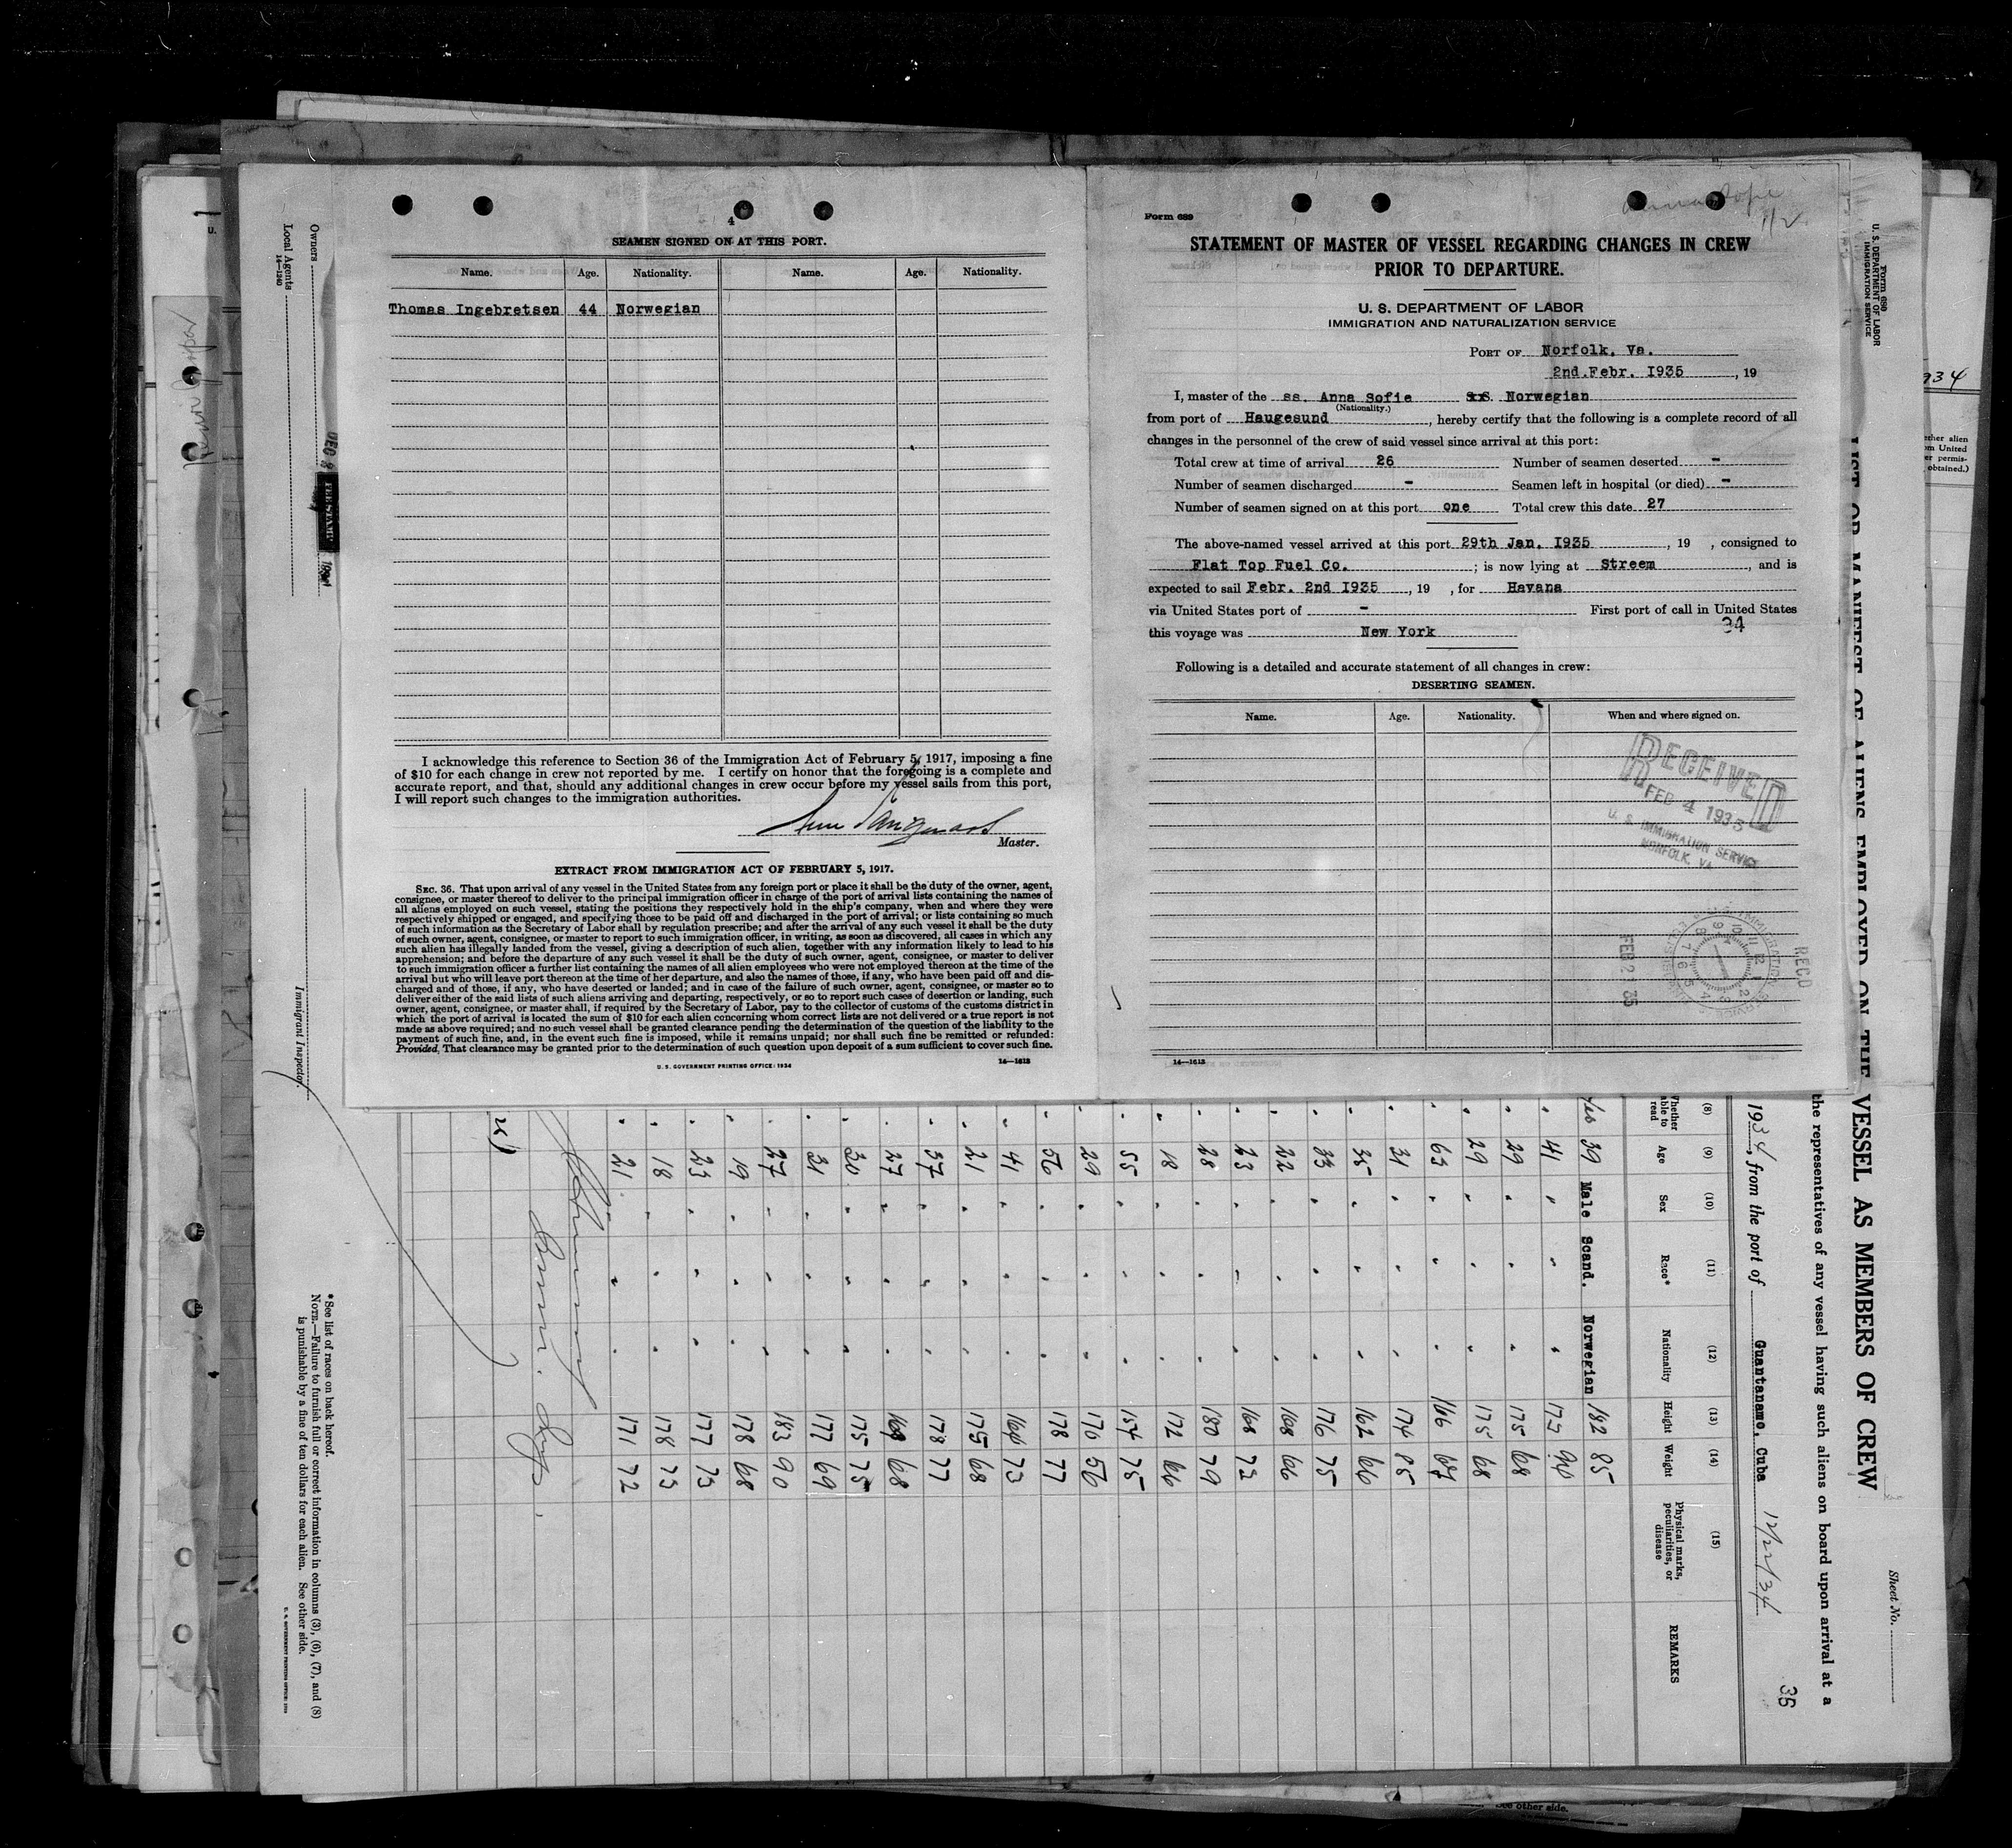 4
SEAMEN SIGNED ON AT THIS PORT.
Name. Age. Nationality. Name. Age. Nationality.
Thomas Ingebretsen 44 Norwegian
I acknowledge this reference to Section 36 of the Immigration Act of February 5, 1917, imposing a fine
of $10 for each change in crew not reported by me. I certify on honor that the foregoing is a complete and
accurate report, and that, should any additional changes in crew occur before my vessel sails from this port,
I will report such changes to the immigration authorities.
Master.
EXTRACT FROM IMMIGRATION ACT OF FEBRUARY 5, 1917.
SEC. 36. That upon arrival of any vessel in the United States from any foreign port or place it shall be the duty of the owner, agent,
consignee, or master thereof to deliver to the principal immigration officer in charge of the port of arrival lists containing the names of
all aliens employed on such vessel, stating the positions they respectively hold in the ship's company, when and where they were
respectively shipped or engaged, and specifying those to be paid off and discharged in the port of arrival; or lists containing so much
of such information as the Secretary of Labor shall by regulation prescribe; and after the arrival of any such vessel it shall be the duty
of such owner, agent, consignee, or master to report to such immigration officer, in writing, as soon as discovered, all cases in which any
such alien has illegally landed from the vessel, giving a description of such alien, together with any information likely to lead to his
apprehension; and before the departure of any such vessel it shall be the duty of such owner, agent, consignee, or master to deliver
to such immigration officer a further list containing the names of all alien employees who were not employed thereon at the time of the
arrival but who will leave port thereon at the time of her departure, and also the names of those, if any, who have been paid off and dis-
charged and of those, if any, who have deserted or landed; and in case of the failure of such owner, agent, consignee, or master so to
deliver either of the said lists of such aliens arriving and departing, respectively, or so to report such cases of desertion or landing, such
owner, agent, consignee, or master shall, if required by the Secretary of Labor, pay to the collector of customs of the customs district in
which the port of arrival is located the sum of $10 for each alien concerning whom correct lists are not delivered or a true report is not
made as above required; and no such vessel shall be granted clearance pending the determination of the question of the liability to the
payment of such fine, and, in the event such fine is imposed, while it remains unpaid; nor shall such fine be remitted or refunded:
Provided, That clearance may be granted prior to the determination of such question upon deposit of a sum sufficient to cover such fine.
U. S. GOVERNMENT PRINTING OFFICE: 1934 14—1613
Form 689
1/2
STATEMENT OF MASTER OF VESSEL REGARDING CHANGES IN CREW
PRIOR TO DEPARTURE.
U. S. DEPARTMENT OF LABOR
IMMIGRATION AND NATURALIZATION SERVICE
PORT OF Norfolk, Va.
2nd.Febr. 1935, 19
I, master of the ss. Anna Sofie S.S. Norwegian
(Nationality.)
from port of Haugesund, hereby certify that the following is a complete record of all
changes in the personnel of the crew of said vessel since arrival at this port:
Total crew at time of arrival 26 Number of seamen deserted -
Number of seamen discharged - Seamen left in hospital (or died) -
Number of seamen signed on at this port one Total crew this date 27
The above-named vessel arrived at this port 29th Jan. 1935, 19 , consigned to
Flat Top Fuel Co. ; is now lying at Streem, and is
expected to sail Febr. 2nd 1935, 19 , for Havana
via United States port of - First port of call in United States
this voyage was New York
34
Following is a detailed and accurate statement of all changes in crew:
DESERTING SEAMEN.
Name. Age. Nationality. When and where signed on.
RECEIVED
FEB 4 1935
U. S. IMMIGRATION SERVICE
NORFOLK, VA
REC'D
FEB 2 35
14—1613
Form 689
U. S. DEPARTMENT OF LABOR
IMMIGRATION SERVICE
Sheet No.
VESSEL AS MEMBERS OF CREW
the representatives of any vessel having such aliens on board upon arrival at a
35
1934, from the port of Guantanamo, Cuba 12/22/34
(8) (9) (10) (11) (12) (13) (14) (15)
Whether able to read Age Sex Race* Nationality Height Weight Physical marks, peculiarities, or disease REMARKS
Yes 39 Male Scand. Norwegian 182 85
" 41 " " "
" 29 " " " 175 68
" 29 " " " 175 68
" 63 " " " 166
" 31 " " " 174 85
" 35 " " " 162 66
" 33 " " " 176 75
" 22 " " " 168 66
" 23 " " " 168 72
" 28 " " " 180 79
" 18 " " " 172 66
" 55 " " " 154 75
" 29 " " " 170 56
" 56 " " " 178 77
" 41 " " " 73
" 21 " " " 175 68
" 37 " " " 178 77
" 27 " " " 68
" 30 " " " 175 75
" 31 " " " 177 69
" 27 " " " 183 90
" 19 " " " 178 68
" 23 " " " 177 73
" 18 " " " 178 73
" 21 " " " 171 72
*See list of races on back hereof.
NOTE.—Failure to furnish full or correct information in columns (3), (6), (7), and (8)
is punishable by a fine of ten dollars for each alien. See other side.
Immigrant Inspector.
Owners
Local Agents
14—1240
FEE STAMP
934
ether alien
om United
er permis-
obtained.)
See other side.